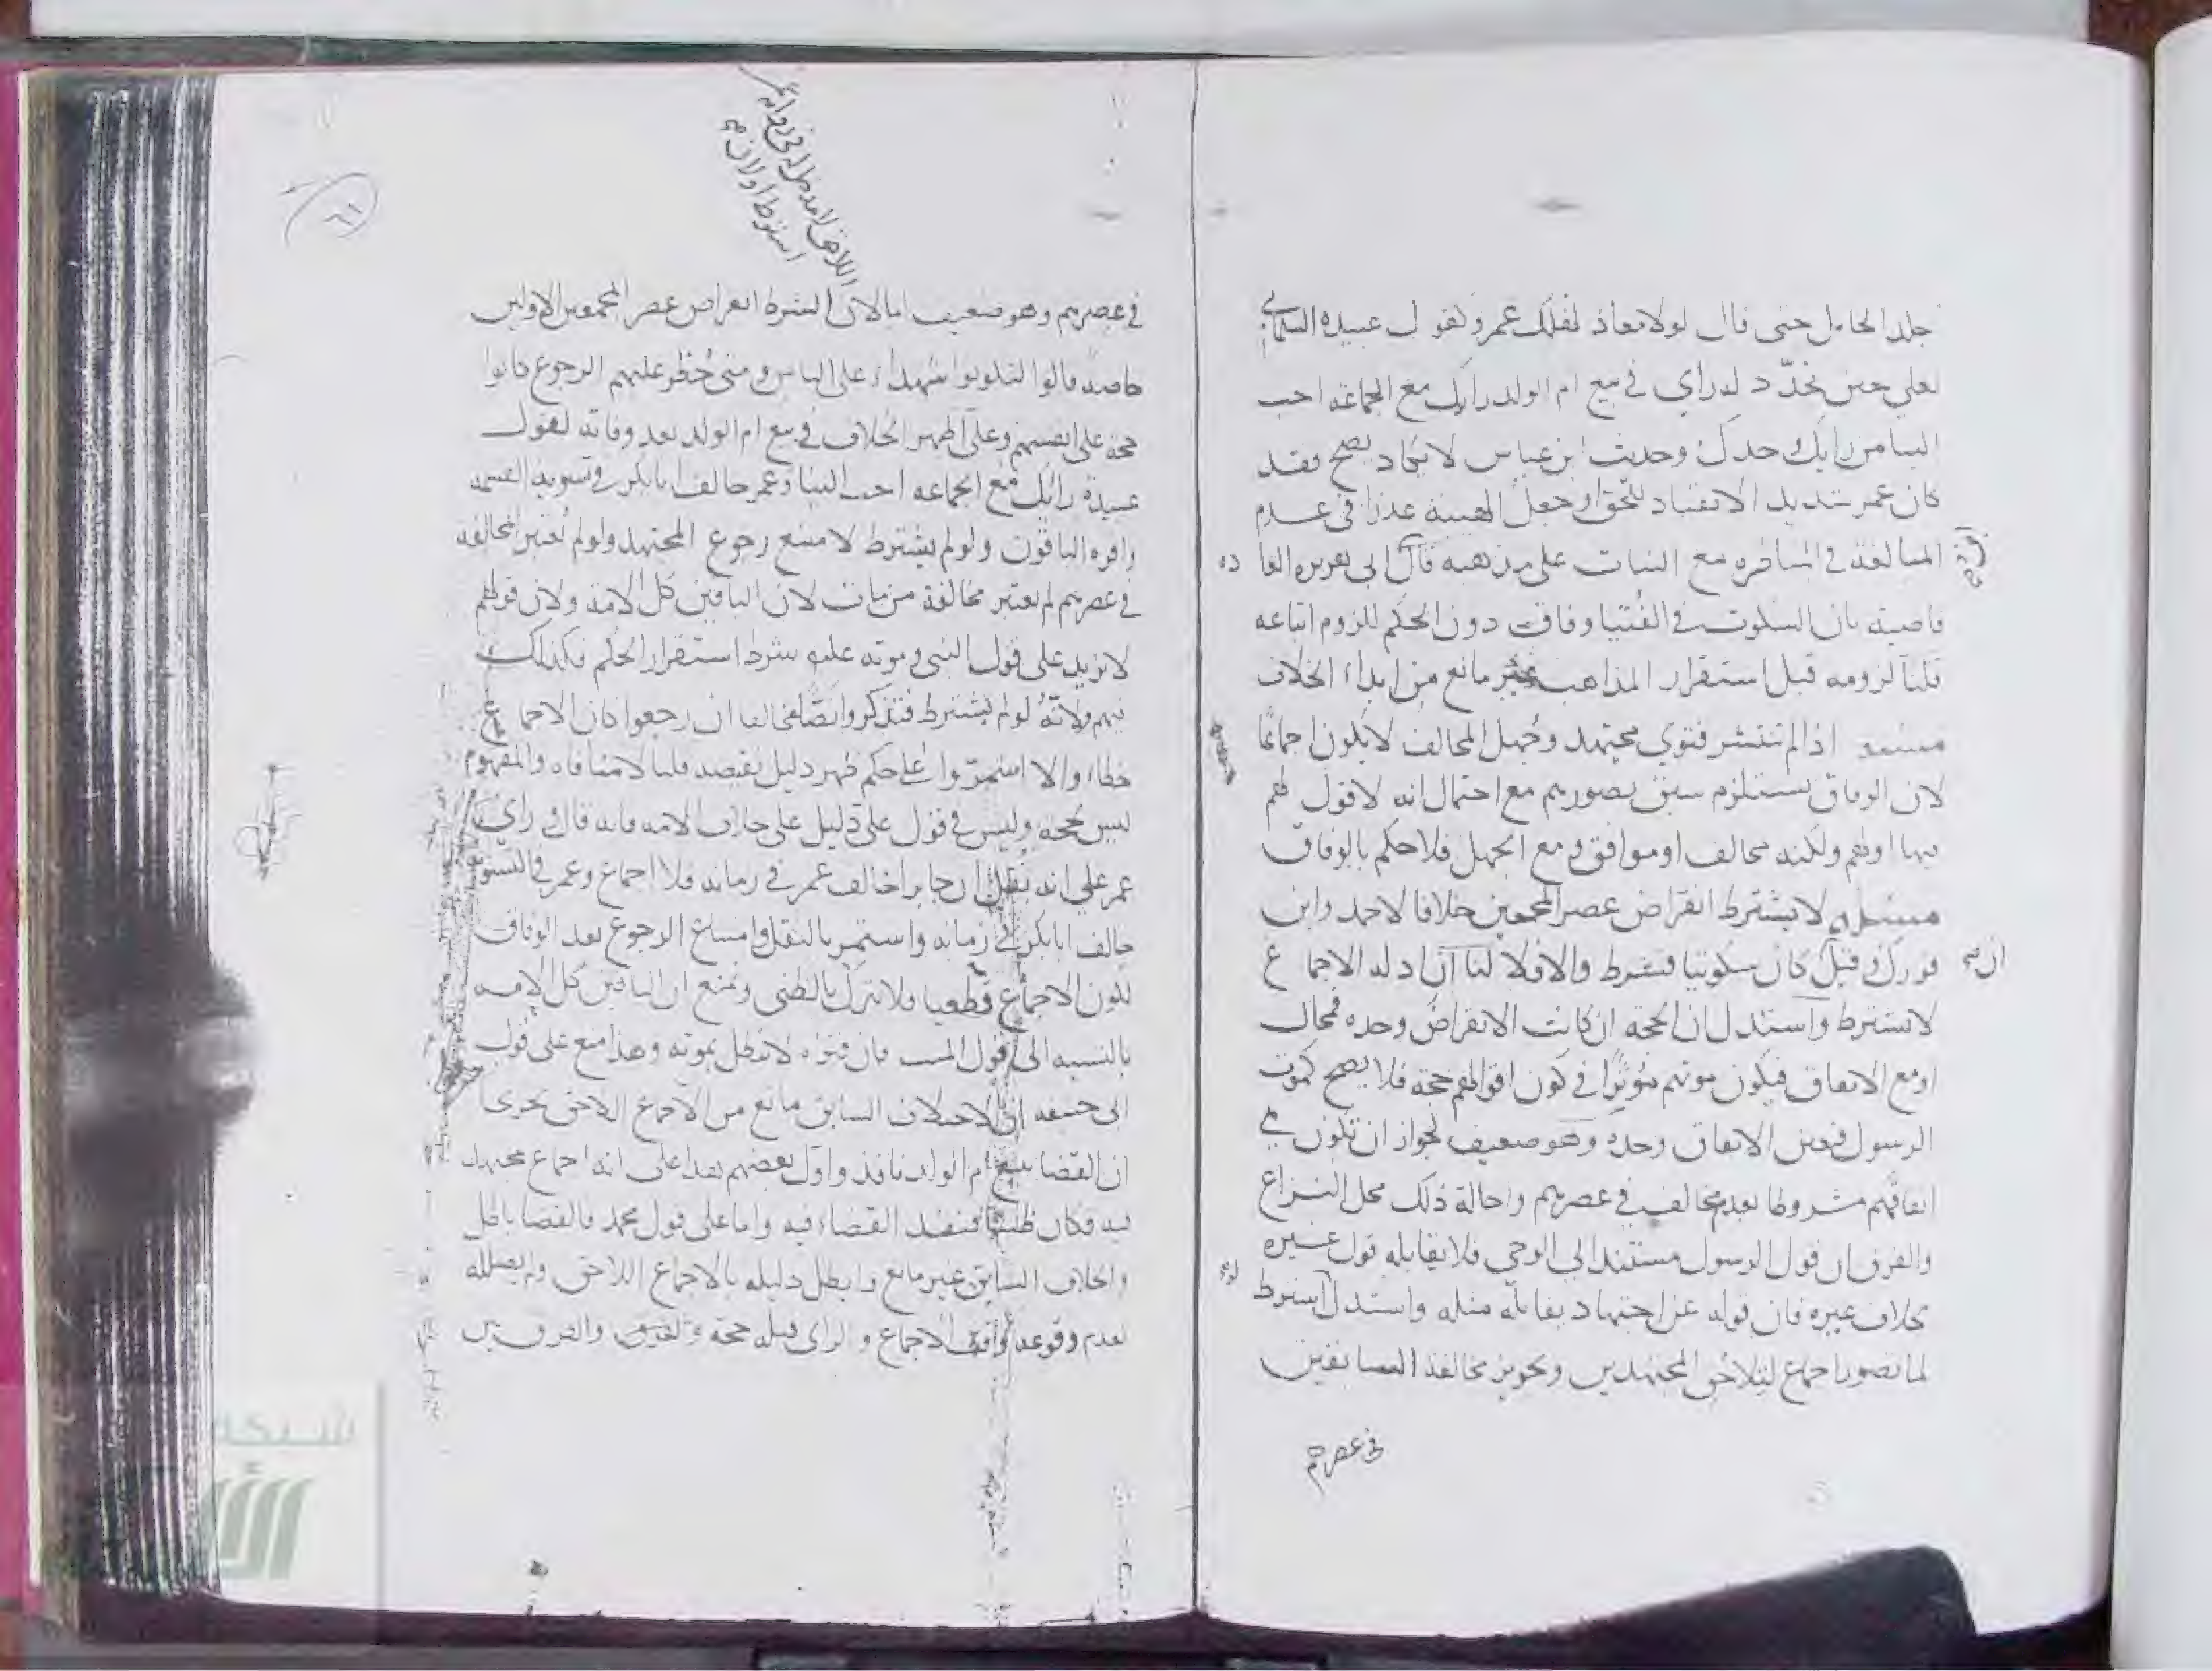 جلد الحامل حتى قال لولا معاذ لهلك عمر وكقول عبيدة السلماني
لعلي حين تجدد له رأي في بيع ام الولد رايك مع الجماعة احب
الينا من رايك وحدك وحديث ابن عباس لا يكاد يصح فقد
كان عمر شديد الانقياد للحق او جعل الهيبة عذرا في عدم
المبالغة في المناظرة مع الثبات على مذهبه قال ابن ابي هريرة العادة
قاضية بان السكوت في الفتيا وفاق دون الحكم للزوم اتباعه
قلنا لزومه قبل استقرار المذاهب غير مانع من ابداء الخلاف
مسئلة اذا لم تنتشر فتوى مجتهد وجهل المخالف لا يكون اجماعا
لان الوفاق يستلزم سبق تصورهم مع احتمال انه لا قول لهم
فيها او لهم ولكنه مخالف او موافق ومع الجهل فلا حكم بالوفاق
مسئلة لا يشترط انقراض عصر المجمعين خلافا لاحمد وابن
فورك وقيل ان كان سكوتيا فشرط والا فلا لنا ان ادلة الاجماع
لا تشترط واستدل ان الحجة ان كانت الانقراض وحده فمحال
او مع الاتفاق فيكون موتهم مؤثرا في كون اقوالهم حجة فلا يصح كموت
الرسول فتعين الاتفاق وحده وهو ضعيف لجواز ان تكون في
اتفاقهم مشروطا بعدم مخالف في عصرهم واحالة ذلك محل النزاع
والفرق ان قول الرسول مستند الى الوحي فلا يقابله قول غيره
بخلاف غيره فان قوله عن اجتهاد يقابله مثله واستدل لو اشترط
لما تصور اجماع لتلاحق المجتهدين وتجويز مخالفة السابقين
في عصرهم
٦١
في عصرهم وهو ضعيف اما لان الشرط انقراض عصر المجمعين الاولين
خاصة قالوا لتكونوا شهداء على الناس ومتى حظر عليهم الرجوع كانوا
حجة على انفسهم وعلي اظهر الخلاف في بيع ام الولد بعد وفاته لقول
عبيدة رايك مع الجماعة احب الينا وعمر خالف ابا بكر في تسوية القسمة
واقره الباقون ولو لم يشترط لامتنع رجوع المجتهد ولو لم تعتبر المخالفة
في عصرهم لم تعتبر مخالفة من مات لان الباقين كل الامة ولان قولهم
لا يزيد على قول النبي وموته عليه شرط استقرار الحكم فكذلك
فيهم ولانه لو لم يشترط فتذكروا نصا مخالفا ان رجعوا كان الاجماع
خطاء والا استمروا على حكم ظهر دليل نقيضه قلنا لا منافاة والمفهوم
ليس بحجة وليس في قول علي دليل على خلاف الامة فانه قال رايي
عمر على انه نقل ان جابرا خالف عمر في زمانه فلا اجماع وعمر في التسوية
خالف ابا بكر في زمانه واستمر بالنقل وامتناع الرجوع بعد الوفاق
لكون الاجماع قطعيا فلا يترك بالظني ونمنع ان الباقين كل الامة
بالنسبة الى قول الميت فان فتواه لا تبطل بموته وهذا منع على قول
ابي حنيفة ان الاختلاف السابق مانع من الاجماع اللاحق تخريجا
ان القضا ببيع ام الولد نافذ واول بعضهم هذا على انه اجماع مجتهد
فيه فكان ظنيا فنفذ القضاء فيه واما على قول محمد فالقضا باطل
والخلاف السابق غير مانع وابطل دليله بالاجماع اللاحق ولم يبطله
لعدم وقوعه الاجماع والراي قبله حجة والفرق بين